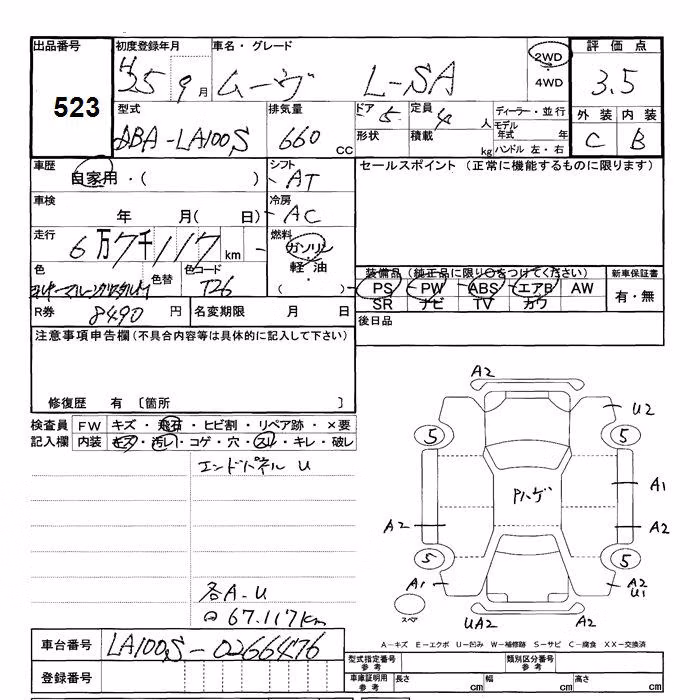 出品番号 初度登録年月 車名・グレード 2WD 4WD 評価点
523 H25 9月 ムーヴ L-SA 3.5
型式 排気量 ドア 5 定員 4人 ディーラー・並行 外装 内装
DBA-LA100S 660cc 形状 積載 kg モデル年式 年 C B
ハンドル 左・右
車歴 自家用・( ) シフト AT セールスポイント (正常に機能するものに限ります)
車検 年 月( 日) 冷房 AC
走行 6万7千117km 燃料 ガソリン
軽油
( ・ )
色 色替 色コード T26 装備品(純正品に限り○をつけてください) 新車保証書
PS PW ABS エアB AW 有・無
SR ナビ TV カワ
R券 8490円 名変期限 月 日 後日品
注意事項申告欄(不具合内容等は具体的に記入して下さい)
修復歴 有 〔箇所 〕
検査員 FW キズ・飛石・ヒビ割・リペア跡・×要
記入欄 内装 キズ・汚レ・コゲ・穴・スレ・キレ・破レ
エンドパネル U
各A-U
67.117km
A2
U2
5 5
A1
Pハゲ
A2 A2
5 5
A1 A2
U1
スペア
UA2 A2
A-キズ E-エクボ U-凹み W-補修跡 S-サビ C-腐食 XX-交換済
車台番号 LA100S-0266476
型式指定番号 参考 類別区分番号 参考
登録番号 車庫証明用 参考 長さ cm 幅 cm 高さ cm